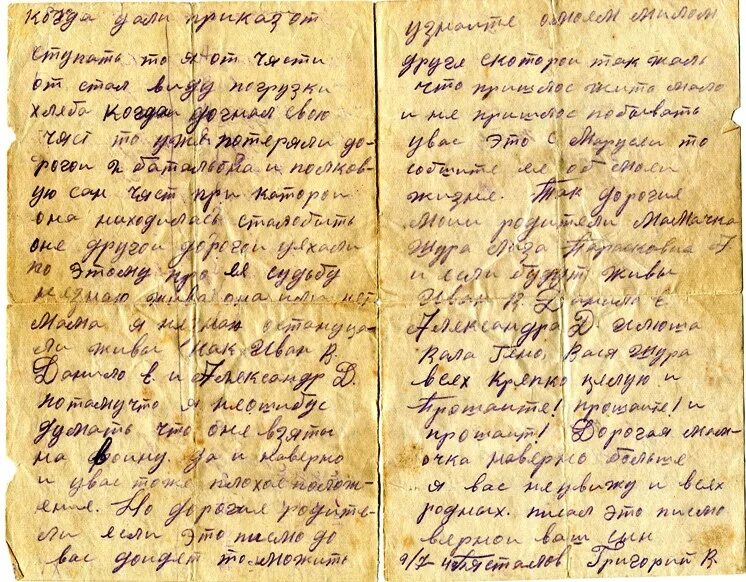 когда дали приказ от
ступать то я от части
от стал виду погрузки
хлеба когда догнал свою
част то уже потеряли до-
рогои 2 баталвона и полков-
ую сан част при каторои
она находилась сталобить
оне другои дорогои уехали
по этому про её судьбу
незнаю жива она или нет
мама я незнаю остануца
ли живы как Иван В.
Данило Е. и Александр Д.
потамучто я неошибус
думать что оне взяты
на воину. да и наверно
и увас тоже плохое полож-
ение. Но дорогие родите-
ли если это писмо до
вас доидет то можить
узнаите омоем милом
друге скоторои так жаль
что пришлос жить мало
и не пришлос побывать
увас это с Марусеи то
собшите ее об моеи
жизне. Так дорогие
мои родители мамачка
Шура Лиза Парасковия
и если будут живы
Иван В. Данило Е.
Александра Д. Илюша
Вася Шура
всех крепко целую и
Прошаите! прошаите! и
прошаит! Дорогая мам-
очка наверно больше
я вас неувижу и всех
родных. писал это писмо
вернои ваш сын
Григорий В.